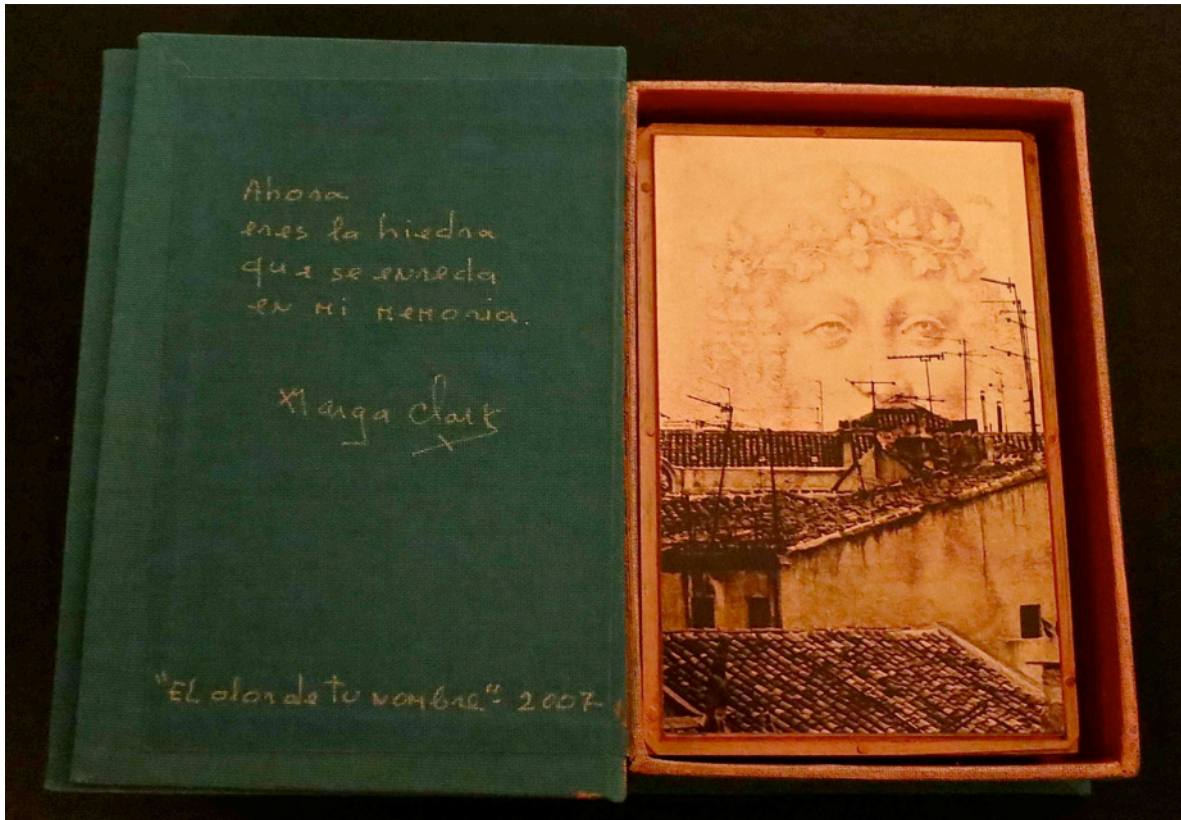 Ahora
eres la hiedra
que se enreda
en mi memoria.
Marga Clark
"El olor de tu nombre" - 2007